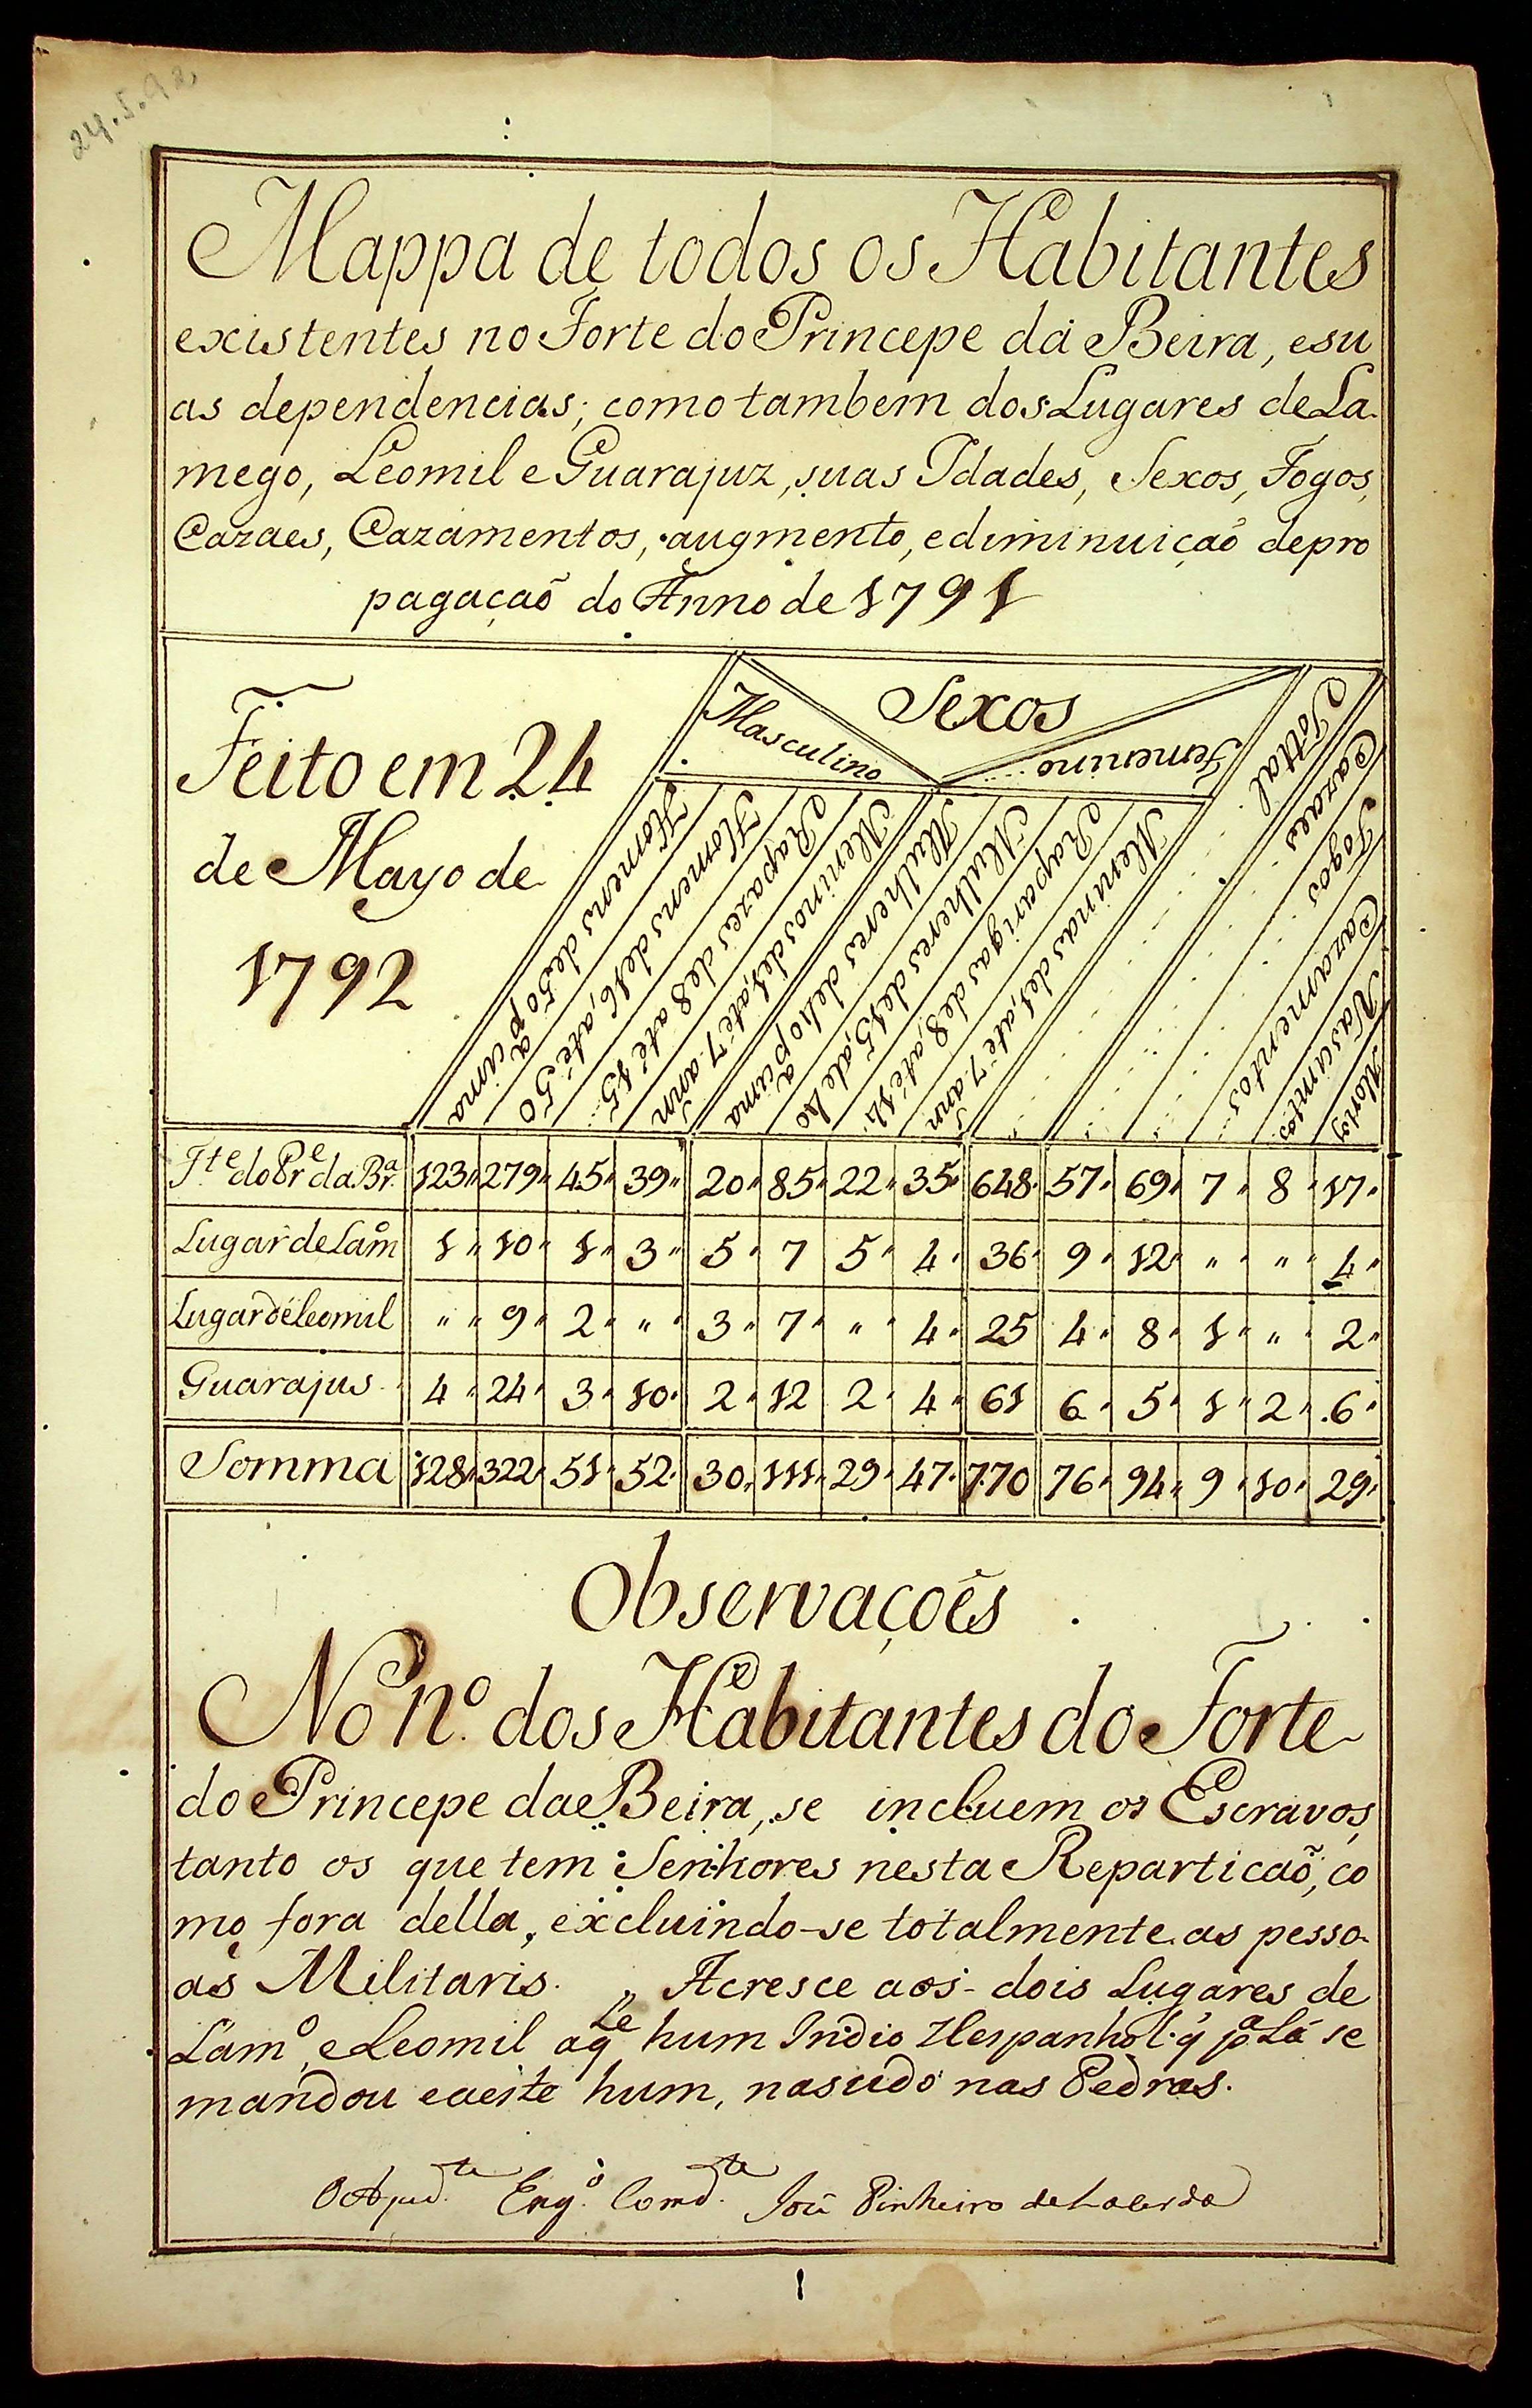 24.5.92
Mappa de todos os Habitantes
existentes no Forte do Princepe da Beira, esu
as dependencias; como tambem dos Lugares de La-
mego, Leomil e Guarajuz, suas Idades, Sexos, Fogos,
Cazaes, Cazamentos, augmento, e diminuiçaõ de pro
pagaçaõ do Anno de 1791
Feito em 24
de Mayo de
1792
Sexos
Masculino
Femenino
Homens de 50 pª cima
Homens de 16, até 50
Rapazes de 8 até 15
Meninos de 1, até 7. ann
Mulheres de 40 pª cima
Mulheres de 15, a de 40
Raparigas de 8, até 14
Meninas de 1, até 7. ann
Tottal
Cazaes
Fogos
Cazamentos
Nascimtos
Mortes
Fte do Pre da Bra 123 279 45 39 20 85 22 35 648 57 69 7 8 17
Lugar de Lamo 1 10 1 3 5 7 5 4 36 9 12 " " 4
Lugar de Leomil " 9 2 " 3 7 " 4 25 4 8 1 " 2
Guarajus 4 24 3 10 2 12 2 4 61 6 5 1 2 6
Somma 128 322 51 52 30 111 29 47 770 76 94 9 10 29
Observaçoẽs
No nº. dos Habitantes do Forte
do Princepe da Beira, se incluem os Escravos,
tanto os que tem Senhores nesta Reparticaõ, co
mo fora della, excluindo-se totalmente as pesso-
as Militaris. " Acresce aos dois Lugares de
Lamº, e Leomil aqle hum Indio Hespanhol q̃ pª Lá se
mandou e aeste hum, nascido nas Pedras.
O Ajudte Engº Comdte Joze Pinheiro de Lacerda
1